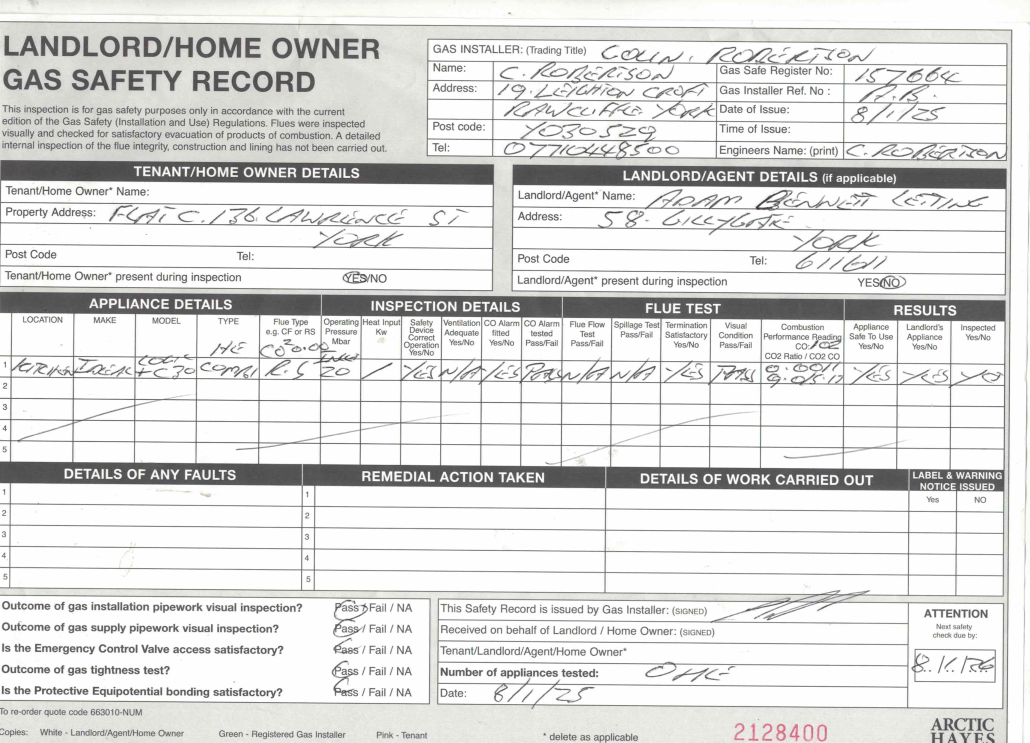 LANDLORD/HOME OWNER
GAS SAFETY RECORD
This inspection is for gas safety purposes only in accordance with the current
edition of the Gas Safety (Installation and Use) Regulations. Flues were inspected
visually and checked for satisfactory evacuation of products of combustion. A detailed
internal inspection of the flue integrity, construction and lining has not been carried out.
GAS INSTALLER: (Trading Title) COLIN. ROBERTSON
Name: C. ROBERTSON Gas Safe Register No: 157664
Address: 19. LEIGHTON CROFT Gas Installer Ref. No :
RAWCLIFFE YORK Date of Issue: 8/1/25
Post code: YO30 529 Time of Issue:
Tel: 07710448500 Engineers Name: (print) C. ROBERTSON
TENANT/HOME OWNER DETAILS
Tenant/Home Owner* Name:
Property Address: FLAT C. 136. LAWRENCE ST
YORK
Post Code Tel:
Tenant/Home Owner* present during inspection YES/NO
LANDLORD/AGENT DETAILS (if applicable)
Landlord/Agent* Name: ADAM BENNETT LETING
Address: 58. GILLYGATE
YORK
Post Code Tel: 611611
Landlord/Agent* present during inspection YES/NO
APPLIANCE DETAILS INSPECTION DETAILS FLUE TEST RESULTS
LOCATION MAKE MODEL TYPE Flue Type e.g. CF or RS Operating Pressure Mbar Heat Input Kw Safety Device Correct Operation Yes/No Ventilation Adequate Yes/No CO Alarm fitted Yes/No CO Alarm tested Pass/Fail Flue Flow Test Pass/Fail Spillage Test Pass/Fail Termination Satisfactory Yes/No Visual Condition Pass/Fail Combustion Performance Reading CO: CO2 Ratio / CO2 CO Appliance Safe To Use Yes/No Landlord's Appliance Yes/No Inspected Yes/No
HE
1 KITCHEN IDEAL LOGIC +C30 COMBI R.S 20 / YES N/A YES PASS N/A N/A YES PASS 0.0011 YES YES
2
3
4
5
DETAILS OF ANY FAULTS REMEDIAL ACTION TAKEN DETAILS OF WORK CARRIED OUT LABEL & WARNING NOTICE ISSUED
Yes NO
1 1
2 2
3 3
4 4
5 5
Outcome of gas installation pipework visual inspection? Pass / Fail / NA
Outcome of gas supply pipework visual inspection? Pass / Fail / NA
Is the Emergency Control Valve access satisfactory? Pass / Fail / NA
Outcome of gas tightness test? Pass / Fail / NA
Is the Protective Equipotential bonding satisfactory? Pass / Fail / NA
This Safety Record is issued by Gas Installer: (SIGNED)
Received on behalf of Landlord / Home Owner: (SIGNED)
Tenant/Landlord/Agent/Home Owner*
Number of appliances tested: ONE
Date: 8/1/25
ATTENTION
Next safety
check due by:
8.1.26
To re-order quote code 663010-NUM
Copies: White - Landlord/Agent/Home Owner Green - Registered Gas Installer Pink - Tenant
* delete as applicable
2128400
ARCTIC
HAYES